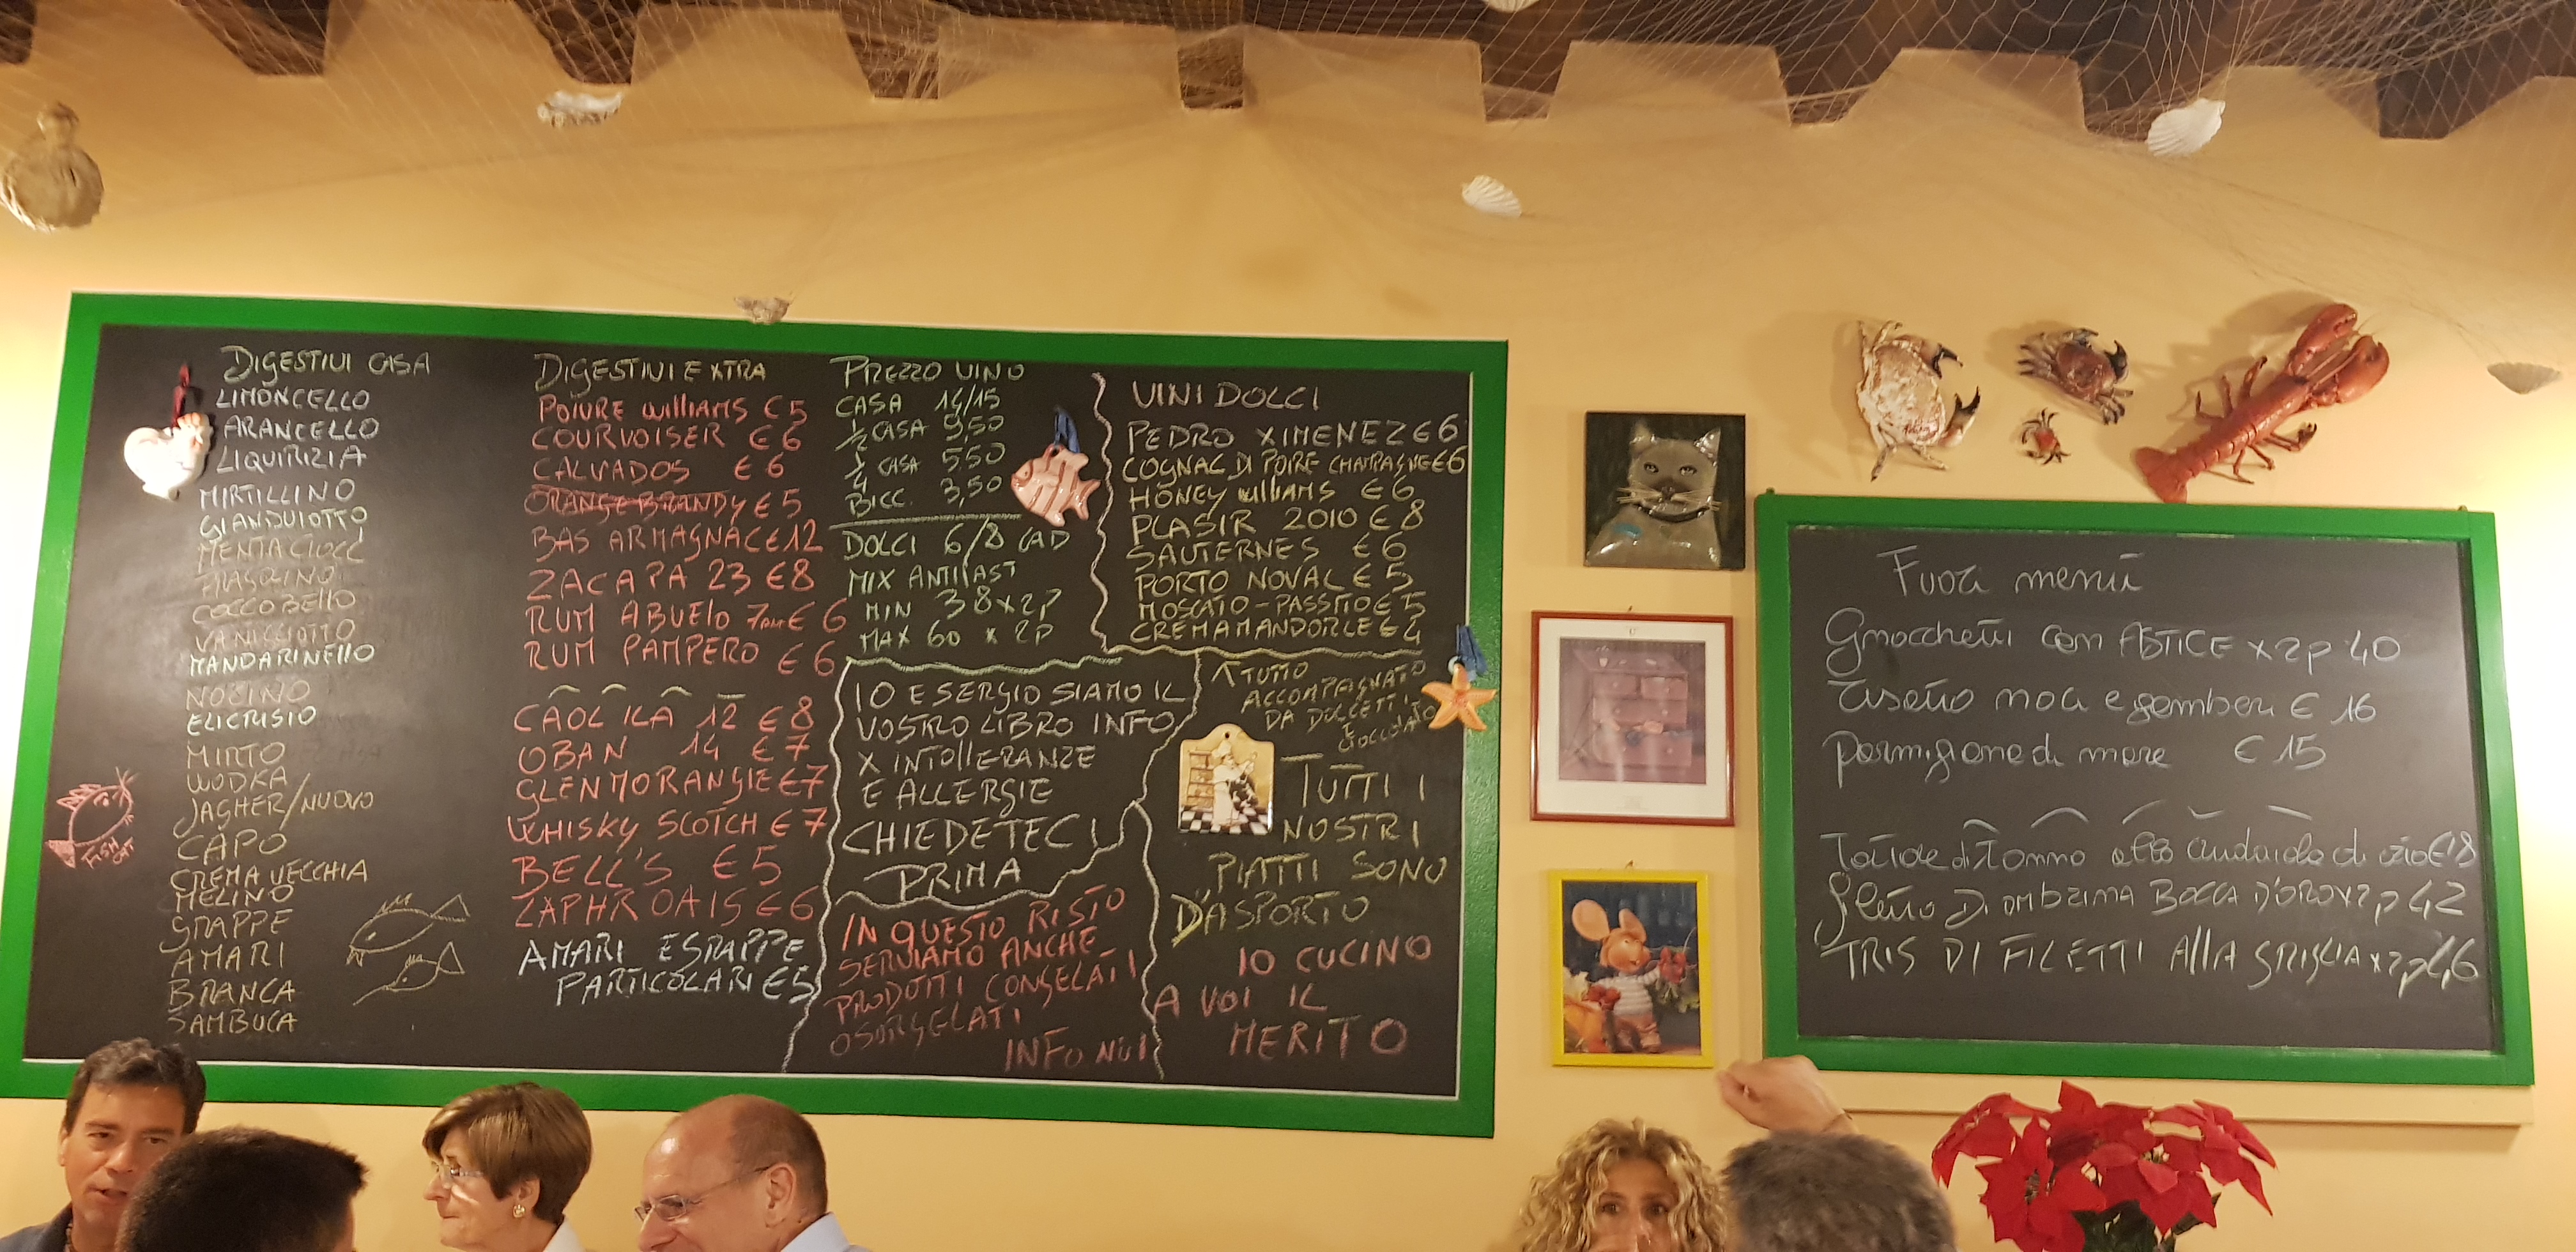 DIGESTIVI CASA
LIMONCELLO
ARANCELLO
LIQUIRIZIA
MIRTILLINO
GIANDUIOTTO
MENTACIOCC
FRAGOLINO
COCCOBELLO
VANIGLIOTTO
MANDARINELLO
NOCINO
ELICRISIO
MIRTO
WODKA
JAGHER/NUOVO
CAPO
CREMA VECCHIA
MELINO
GRAPPE
AMARI
BRANCA
SAMBUCA
FISH
DIGESTIVI EXTRA
POIVRE WILLIAMS € 5
COURVOISER € 6
CALVADOS € 6
ORANGE BRANDY € 5
BAS ARMAGNAC € 12
ZACAPA 23 € 8
RUM ABUELO 7 € 6
RUM PAMPERO € 6
CAOL ILA 12 € 8
OBAN 14 € 7
GLENMORANGIE € 7
WHISKY SCOTCH € 7
BELL'S € 5
LAPHROAIG € 6
AMARI E GRAPPE
PARTICOLARI € 5
PREZZO VINO
CASA 14/15
1/2 CASA 9,50
1/4 CASA 5,50
BICC. 3,50
DOLCI 6/8 CAD
MIX ANTIPAST
MIN 38 x 2P
MAX 60 x 2P
VINI DOLCI
PEDRO XIMENEZ € 6
COGNAC DI POIRE CHAMPAGNE € 6
HONEY WILLIAMS € 6
PLASIR 2010 € 8
SAUTERNES € 6
PORTO NOVAL € 5
MOSCATO - PASSITO € 5
CREMA MANDORLE € 4
TUTTO
ACCOMPAGNATO
DA DOLCETTI
E
CIOCCOLATO
IO E SERGIO SIAMO IL
VOSTRO LIBRO INFO
X INTOLLERANZE
E ALLERGIE
CHIEDETECI
PRIMA
IN QUESTO RISTO
SERVIAMO ANCHE
PRODOTTI CONGELATI
O SURGELATI
INFO NOI
TUTTI I
NOSTRI
PIATTI SONO
D'ASPORTO
IO CUCINO
A VOI IL
MERITO
Fuori menù
Gnocchetti con ASTICE x 2p 40
e gamberi € 16
parmigiana di mare € 15
di Tonno € 18
Filetto Di ombrina BOCCA D'ORO x 2p 42
TRIS DI FILETTI ALLA GRIGLIA x 2p 46